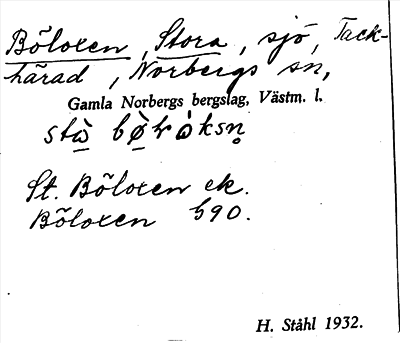 Böloxen, Stora, sjö, Tack-
härad, Norbergs sn,
Gamla Norbergs bergslag, Västm. l.
St. Böloxen ek.
Böloxen 590.
H. Ståhl 1932.